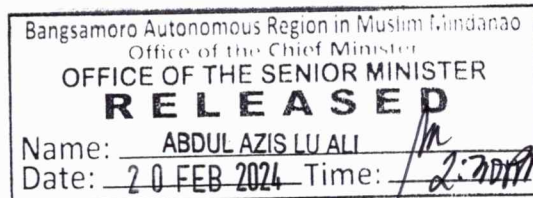 Bangsamoro Autonomous Region in Muslim Mindanao
Office of the Chief Minister
OFFICE OF THE SENIOR MINISTER
RELEASED
Name: ABDUL AZIS LU ALI
Date: 20 FEB 2024 Time: 2:30PM